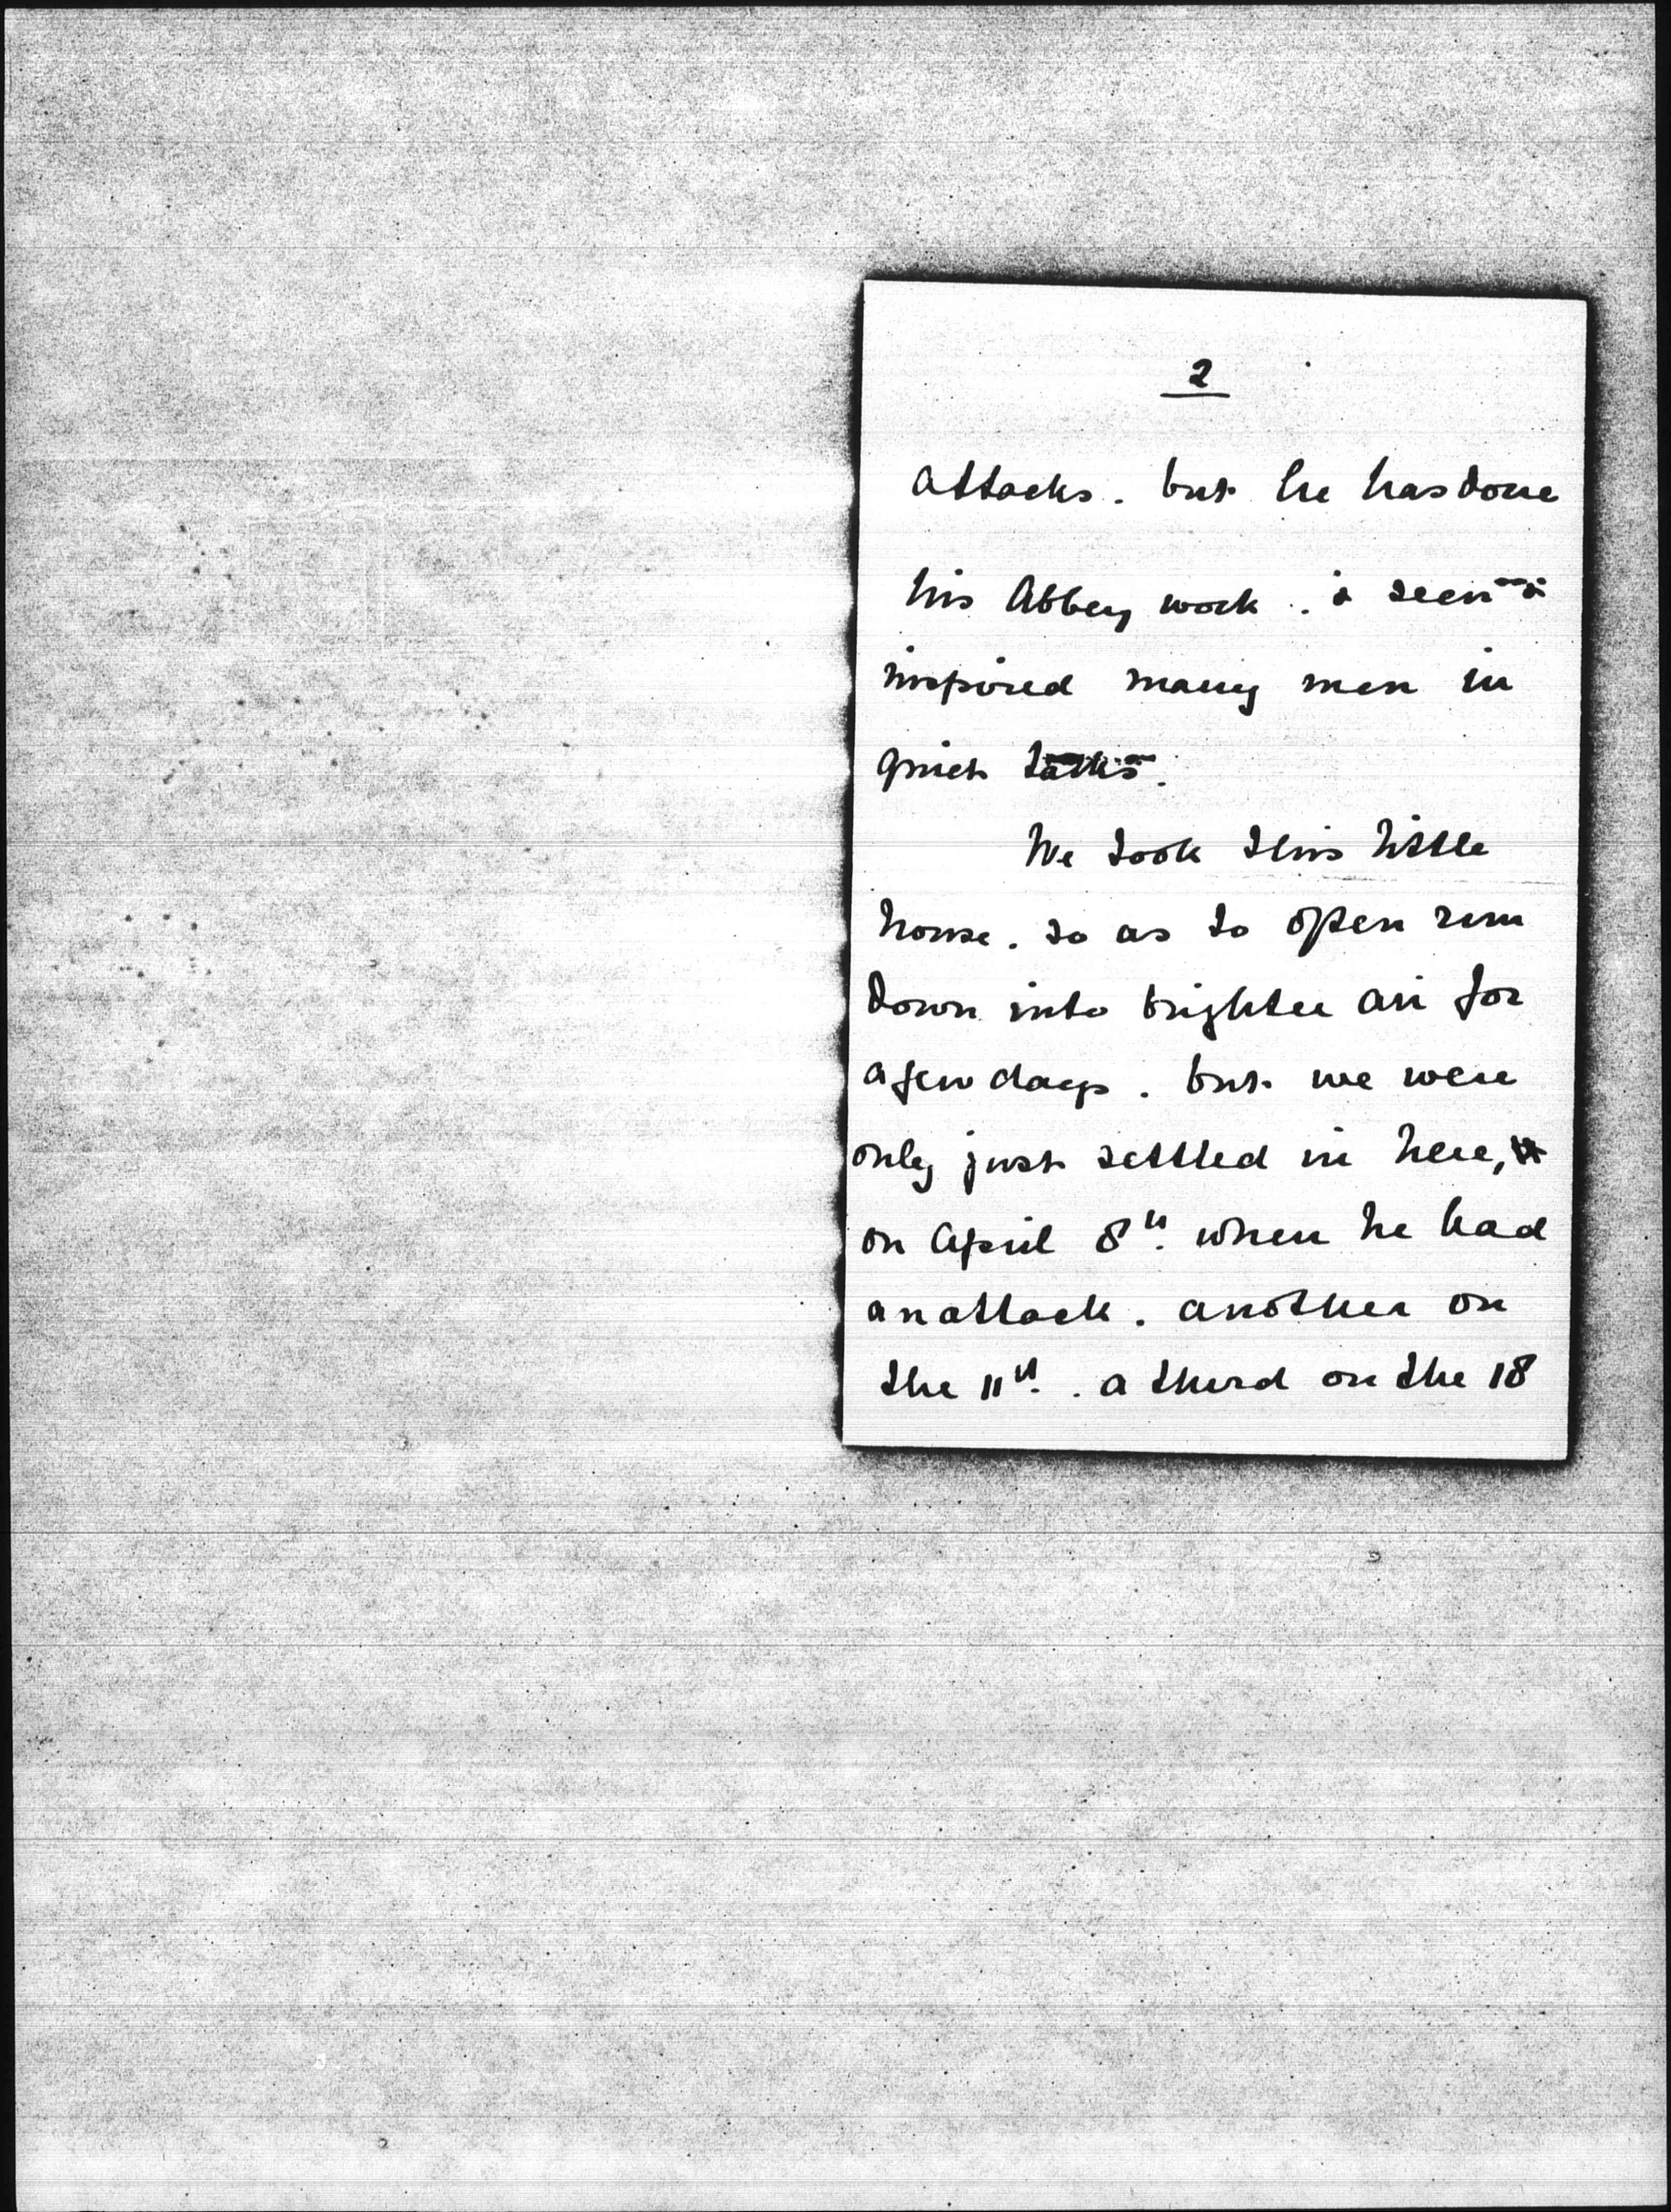 2
attacks. but he has done
his Abbey work. & seen &
inspired many men in
quiet talks.
We took this little
house. so as to often run
down into brighter air for
a few days. but we were
only just settled in here,
on April 8th. when he had
an attack. another on
the 11th. . a third on the 18